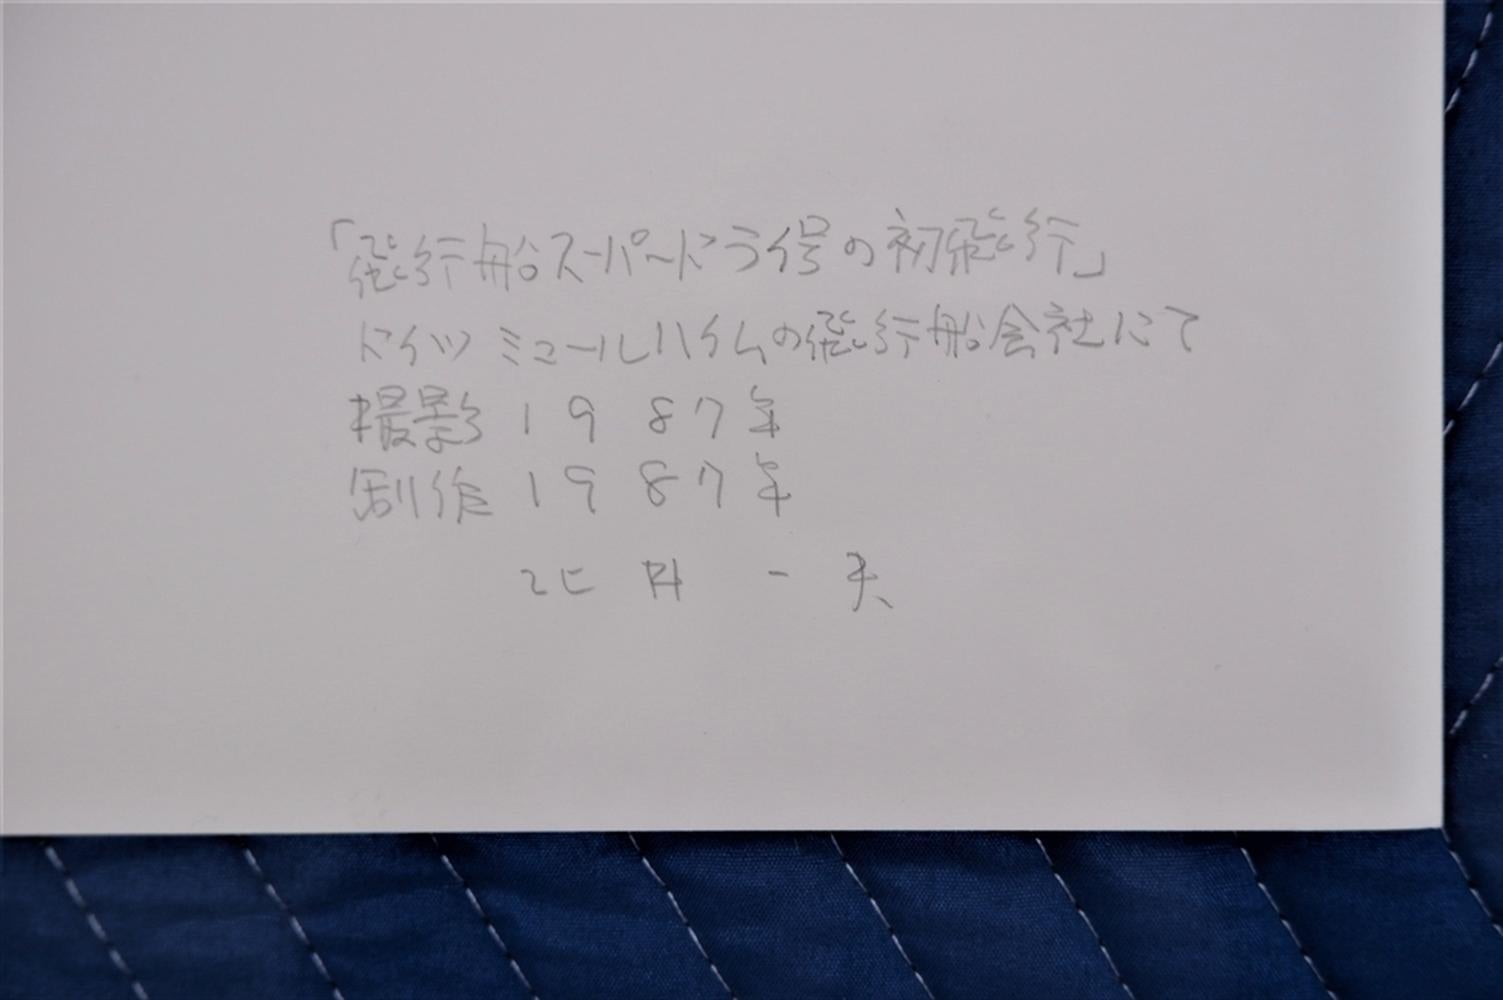 「飛行船スーパードラ号の初飛行」
ドイツ ミュールハイムの飛行船会社にて
撮影 1987年
制作 1987年
北井 一夫